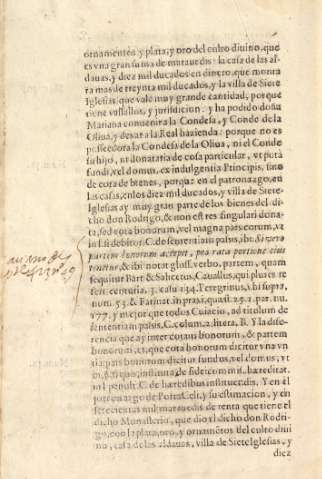 ornamentos, y plata, y oro del culto diuino, que
es vna gran suma de marauedis: la casa de las al-
dauas, y diez mil ducados en dinero, que monta
ra mas de treynta mil ducados, y la villa de Siete
Iglesias que vale muy grande cantidad, porque
tiene vassallos, y jurisdicion: y ha podido doña
Mariana conuenir a la Condesa, y Conde de la
Oliua, y dexar a la Real hazienda: porque no es
posseedora la Condesa de la Oliua, ni el Conde
su hijo, ut donataria de cosa particular, vt putà
fundi, vel domus, ex indulgentia Principis, sino
de cota de bienes, porque en el patronazgo, en
las casas, en los diez mil ducados, y villa de Siete
Iglesias ay muy gran parte de los bienes del di-
cho don Rodrigo, & non est res singulari dona-
ta, sed cota bonorum, vel magna pars eorum, vt
in l. si debitor, C. de sententiam passis, ibi: Si vero
partem bonorum accepit, pro rata portione eius
tenetur, & ibi notat gloss. verbo, partem, quam
sequitur Bart. & Salicetus, Cauallus, qui plures re
fert, centuria, 3. casu 234. Peregrinus, vbi supra,
num. 53. & Farinat. in praxi, quæst. 25. 1. par. nu.
177. y mejor que todos Cuiacio, ad titulum de
sententiam passis, C. colum. 2. litera, B. Y la diffe-
rencia que ay inter cotam bonorum, & partem
bonorum
es, que cota bonorum dicitur vna vn
tia: pars bonorum dicitur fundus, vel domus, vt
Y en el
patronazgo de PortaCœli, y su estimacion, y en
setecientas mil marauedis de renta que tiene el
dicho Monasterio, que dio el dicho don Rodri-
go, con la plata, oro, y ornamẽtos del culto diui
no, casa de las aldauas, villa de Siete Iglesias, y
diez